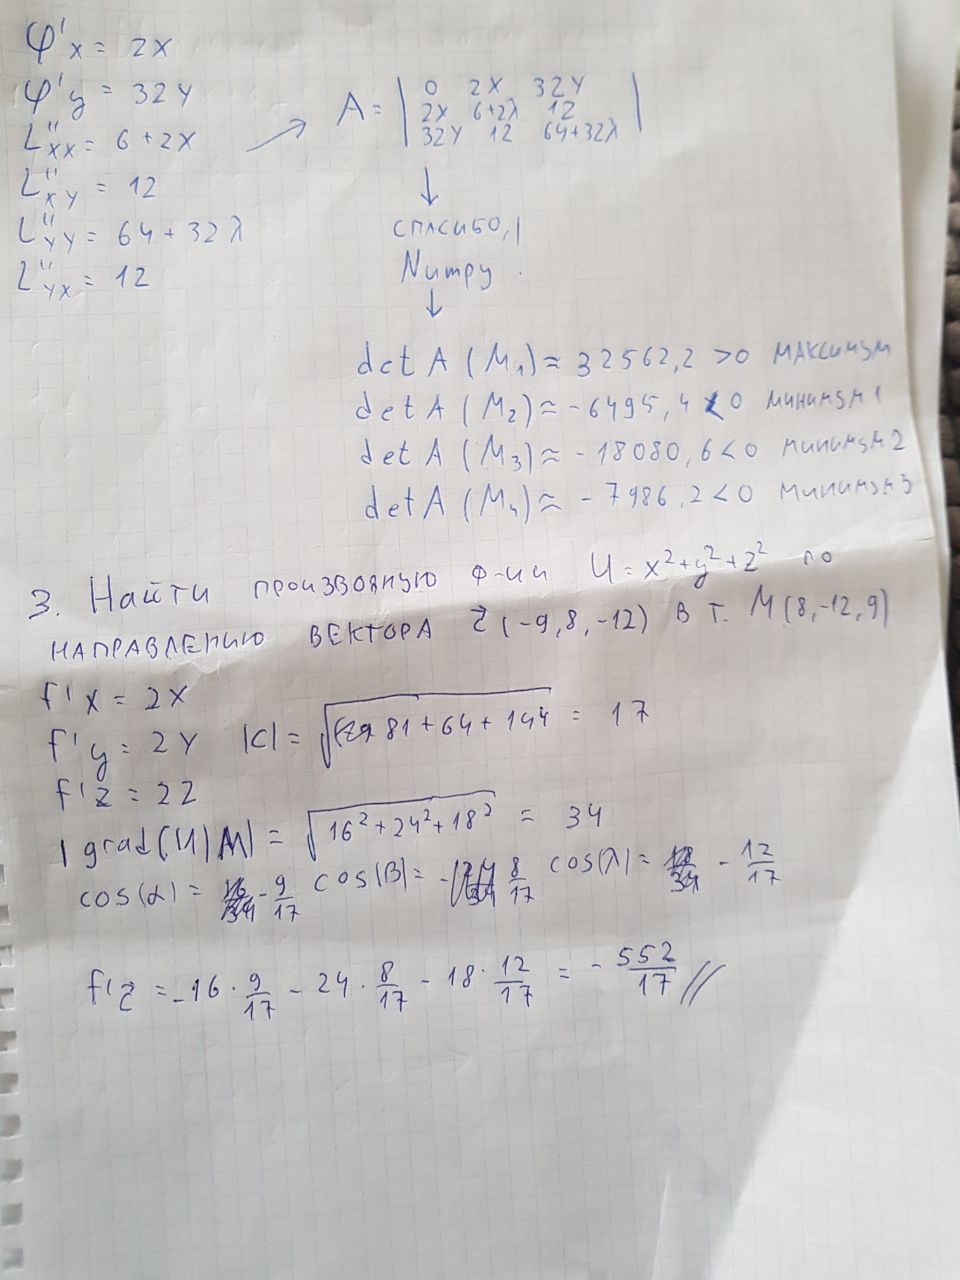 φ'x = 2x
φ'y = 32y
L''xx = 6 + 2x
L''xy = 12
L''yy = 64 + 32λ
L''yx = 12
A = | 0 2x 32y |
| 2x 6+2λ 12 |
| 32y 12 64+32λ |
спасибо,
Numpy
det A (M₁) ≈ 32562,2 >0 максимум
det A (M₂) ≈ -6495,4 <0 минимум 1
det A (M₃) ≈ -18080,6 <0 минимум 2
det A (M₄) ≈ -7986,2 <0 минимум 3
3. Найти производную ф-ии U = x²+y²+z² по
направлению вектора c̄ (-9, 8, -12) в т. M (8, -12, 9)
f'x = 2x
f'y = 2y |c| = √(81 + 64 + 144) = 17
f'z = 2z
|grad(U)M| = √(16² + 24² + 18²) = 34
cos(α) = -9/17 cos(β) = 8/17 cos(λ) = -12/17
f'c = -16 · 9/17 - 24 · 8/17 - 18 · 12/17 = -552/17 //